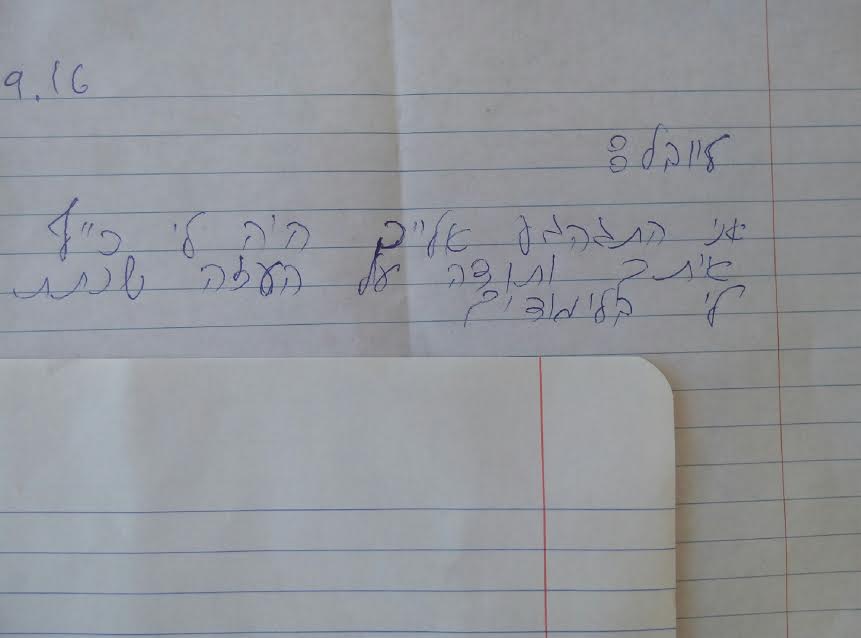 9.16
ליובל:
אני התגהגע אלייכ היה לי כייף
איתכ ותודה על העזה שנתת
לי בלימודים